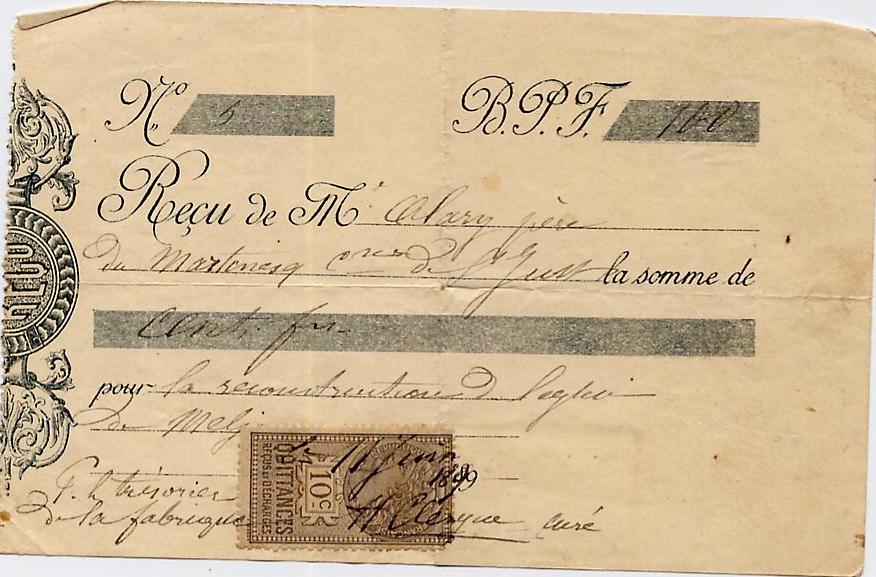 No. 5
B.P.F. 100
Reçu de Mr Alary père
du Martinesq cne de St Just la somme de
Cent frs
pour la reconstruction de l'église
de Meljac
le 11 1899
P. le trésorier
de la fabrique
curé
10c
QUITTANCES
REÇUS ET DÉCHARGES